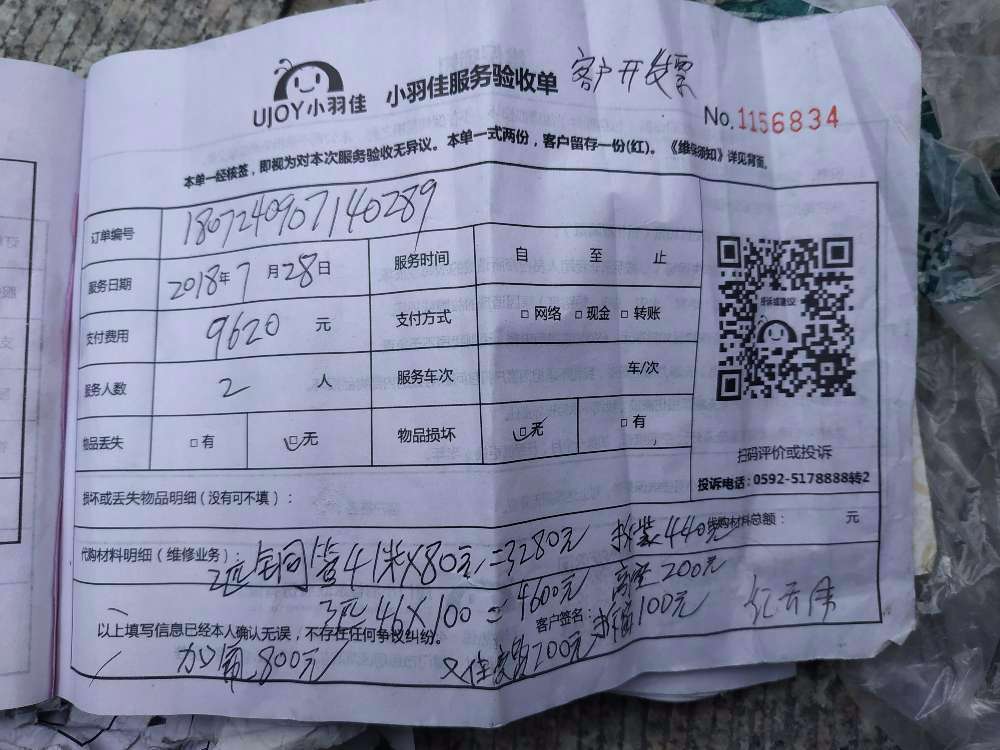 UJOY小羽佳 小羽佳服务验收单 客户开发票
No.1156834
本单一经核签，即视为对本次服务验收无异议。本单一式两份，客户留存一份(红)。《维保须知》详见背面。
订单编号 1807240907140289
服务日期 2018年7月28日 服务时间 自 至 止
支付费用 9620 元 支付方式 □网络 □现金 □转账
服务人数 2 人 服务车次 车/次
物品丢失 □有 □无 物品损坏 □无 □有
扫码评价或投诉
投诉电话：0592-5178888转2
损坏或丢失物品明细（没有可不填）：
代购材料明细（维修业务）： 2匹 铜管41米X80元=3280元 拆装440元 代购材料总额： 元
3匹 46X100=4600元 高空200元
以上填写信息已经本人确认无误，不存在任何争议纠纷。 客户签名：
100元
加氟800元 200元